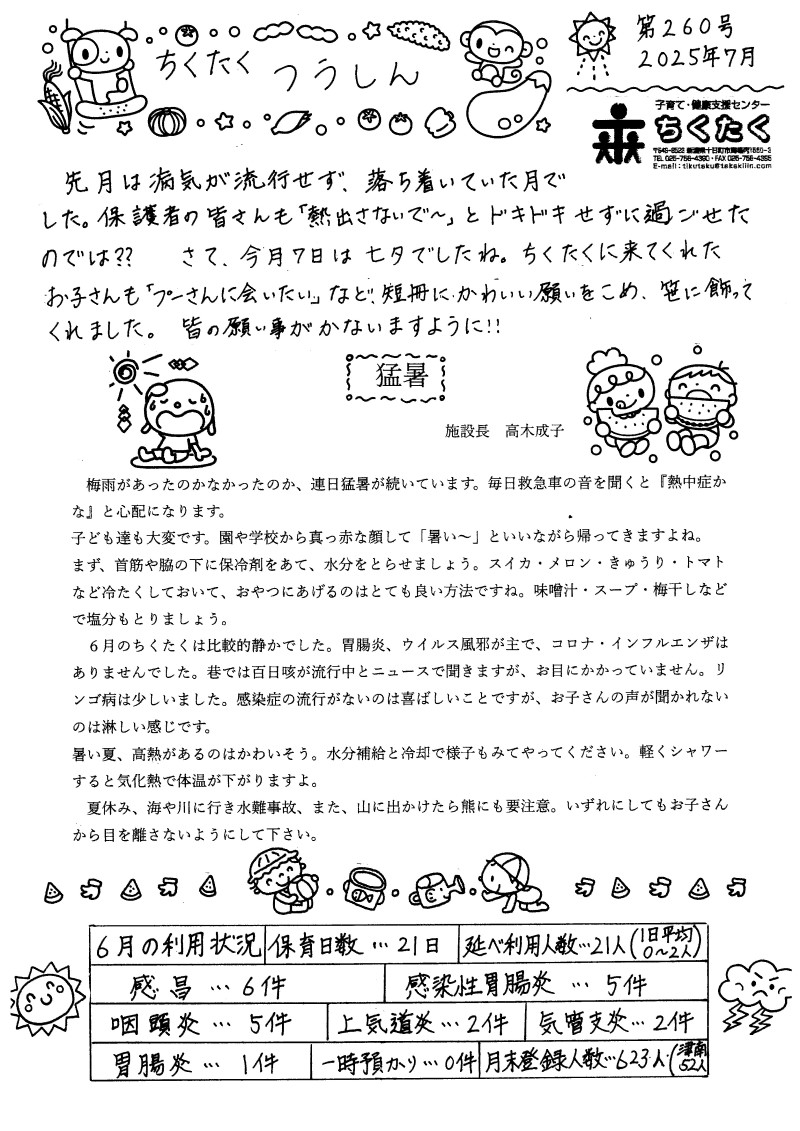 ちくたく つうしん
第260号
2025年7月
子育て・健康支援センター
ちくたく
先月は病気が流行せず、落ち着いていた月で
した。保護者の皆さんも「熱出さないで〜」とドキドキせずに過ごせた
のでは?? さて、今月7日は七夕でしたね。ちくたくに来てくれた
お子さんも「プーさんに会いたい」など、短冊にかわいい願いをこめ、笹に飾って
くれました。 皆の願い事がかないますように!!
猛暑
施設長 高木成子
梅雨があったのかなかったのか、連日猛暑が続いています。毎日救急車の音を聞くと『熱中症か
な』と心配になります。
子ども達も大変です。園や学校から真っ赤な顔して「暑い〜」といいながら帰ってきますよね。
まず、首筋や脇の下に保冷剤をあて、水分をとらせましょう。スイカ・メロン・きゅうり・トマト
など冷たくしておいて、おやつにあげるのはとても良い方法ですね。味噌汁・スープ・梅干しなど
で塩分もとりましょう。
6月のちくたくは比較的静かでした。胃腸炎、ウイルス風邪が主で、コロナ・インフルエンザは
ありませんでした。巷では百日咳が流行中とニュースで聞きますが、お目にかかっていません。リ
ンゴ病は少しいました。感染症の流行がないのは喜ばしいことですが、お子さんの声が聞かれない
のは淋しい感じです。
暑い夏、高熱があるのはかわいそう。水分補給と冷却で様子もみてやってください。軽くシャワー
すると気化熱で体温が下がりますよ。
夏休み、海や川に行き水難事故、また、山に出かけたら熊にも要注意。いずれにしてもお子さん
から目を離さないようにして下さい。
6月の利用状況 保育日数…21日 延べ利用人数…21人(1日平均 0〜2人)
感冒…6件 感染性胃腸炎…5件
咽頭炎…5件 上気道炎…2件 気管支炎…2件
胃腸炎…1件 一時預かり…0件 月末登録人数…623人(津南 52人)